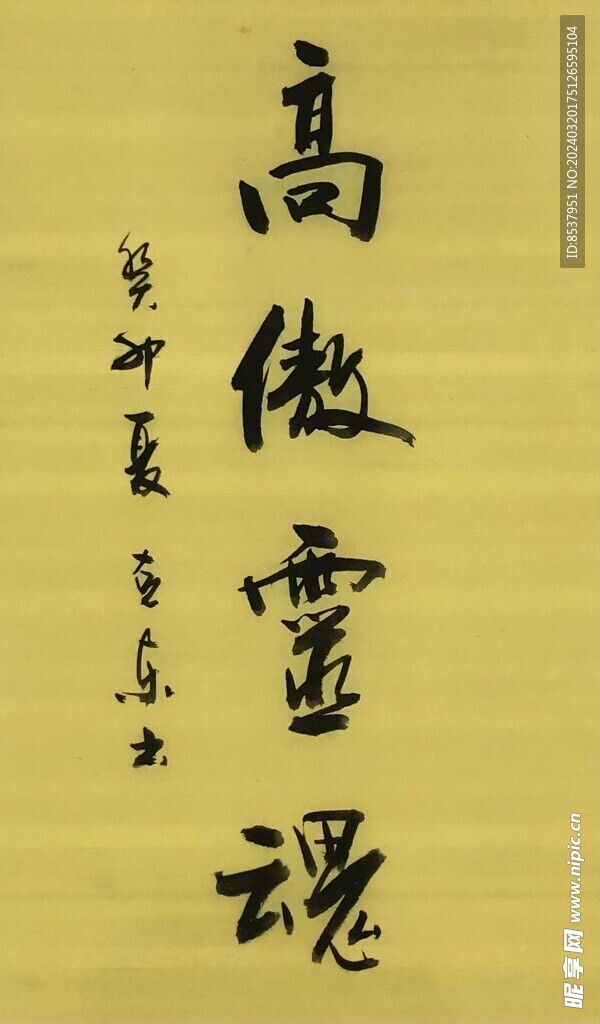 高傲靈魂
癸卯夏 克东书
ID:8537951 NO:20240320175126595104
昵享网 www.nipic.cn